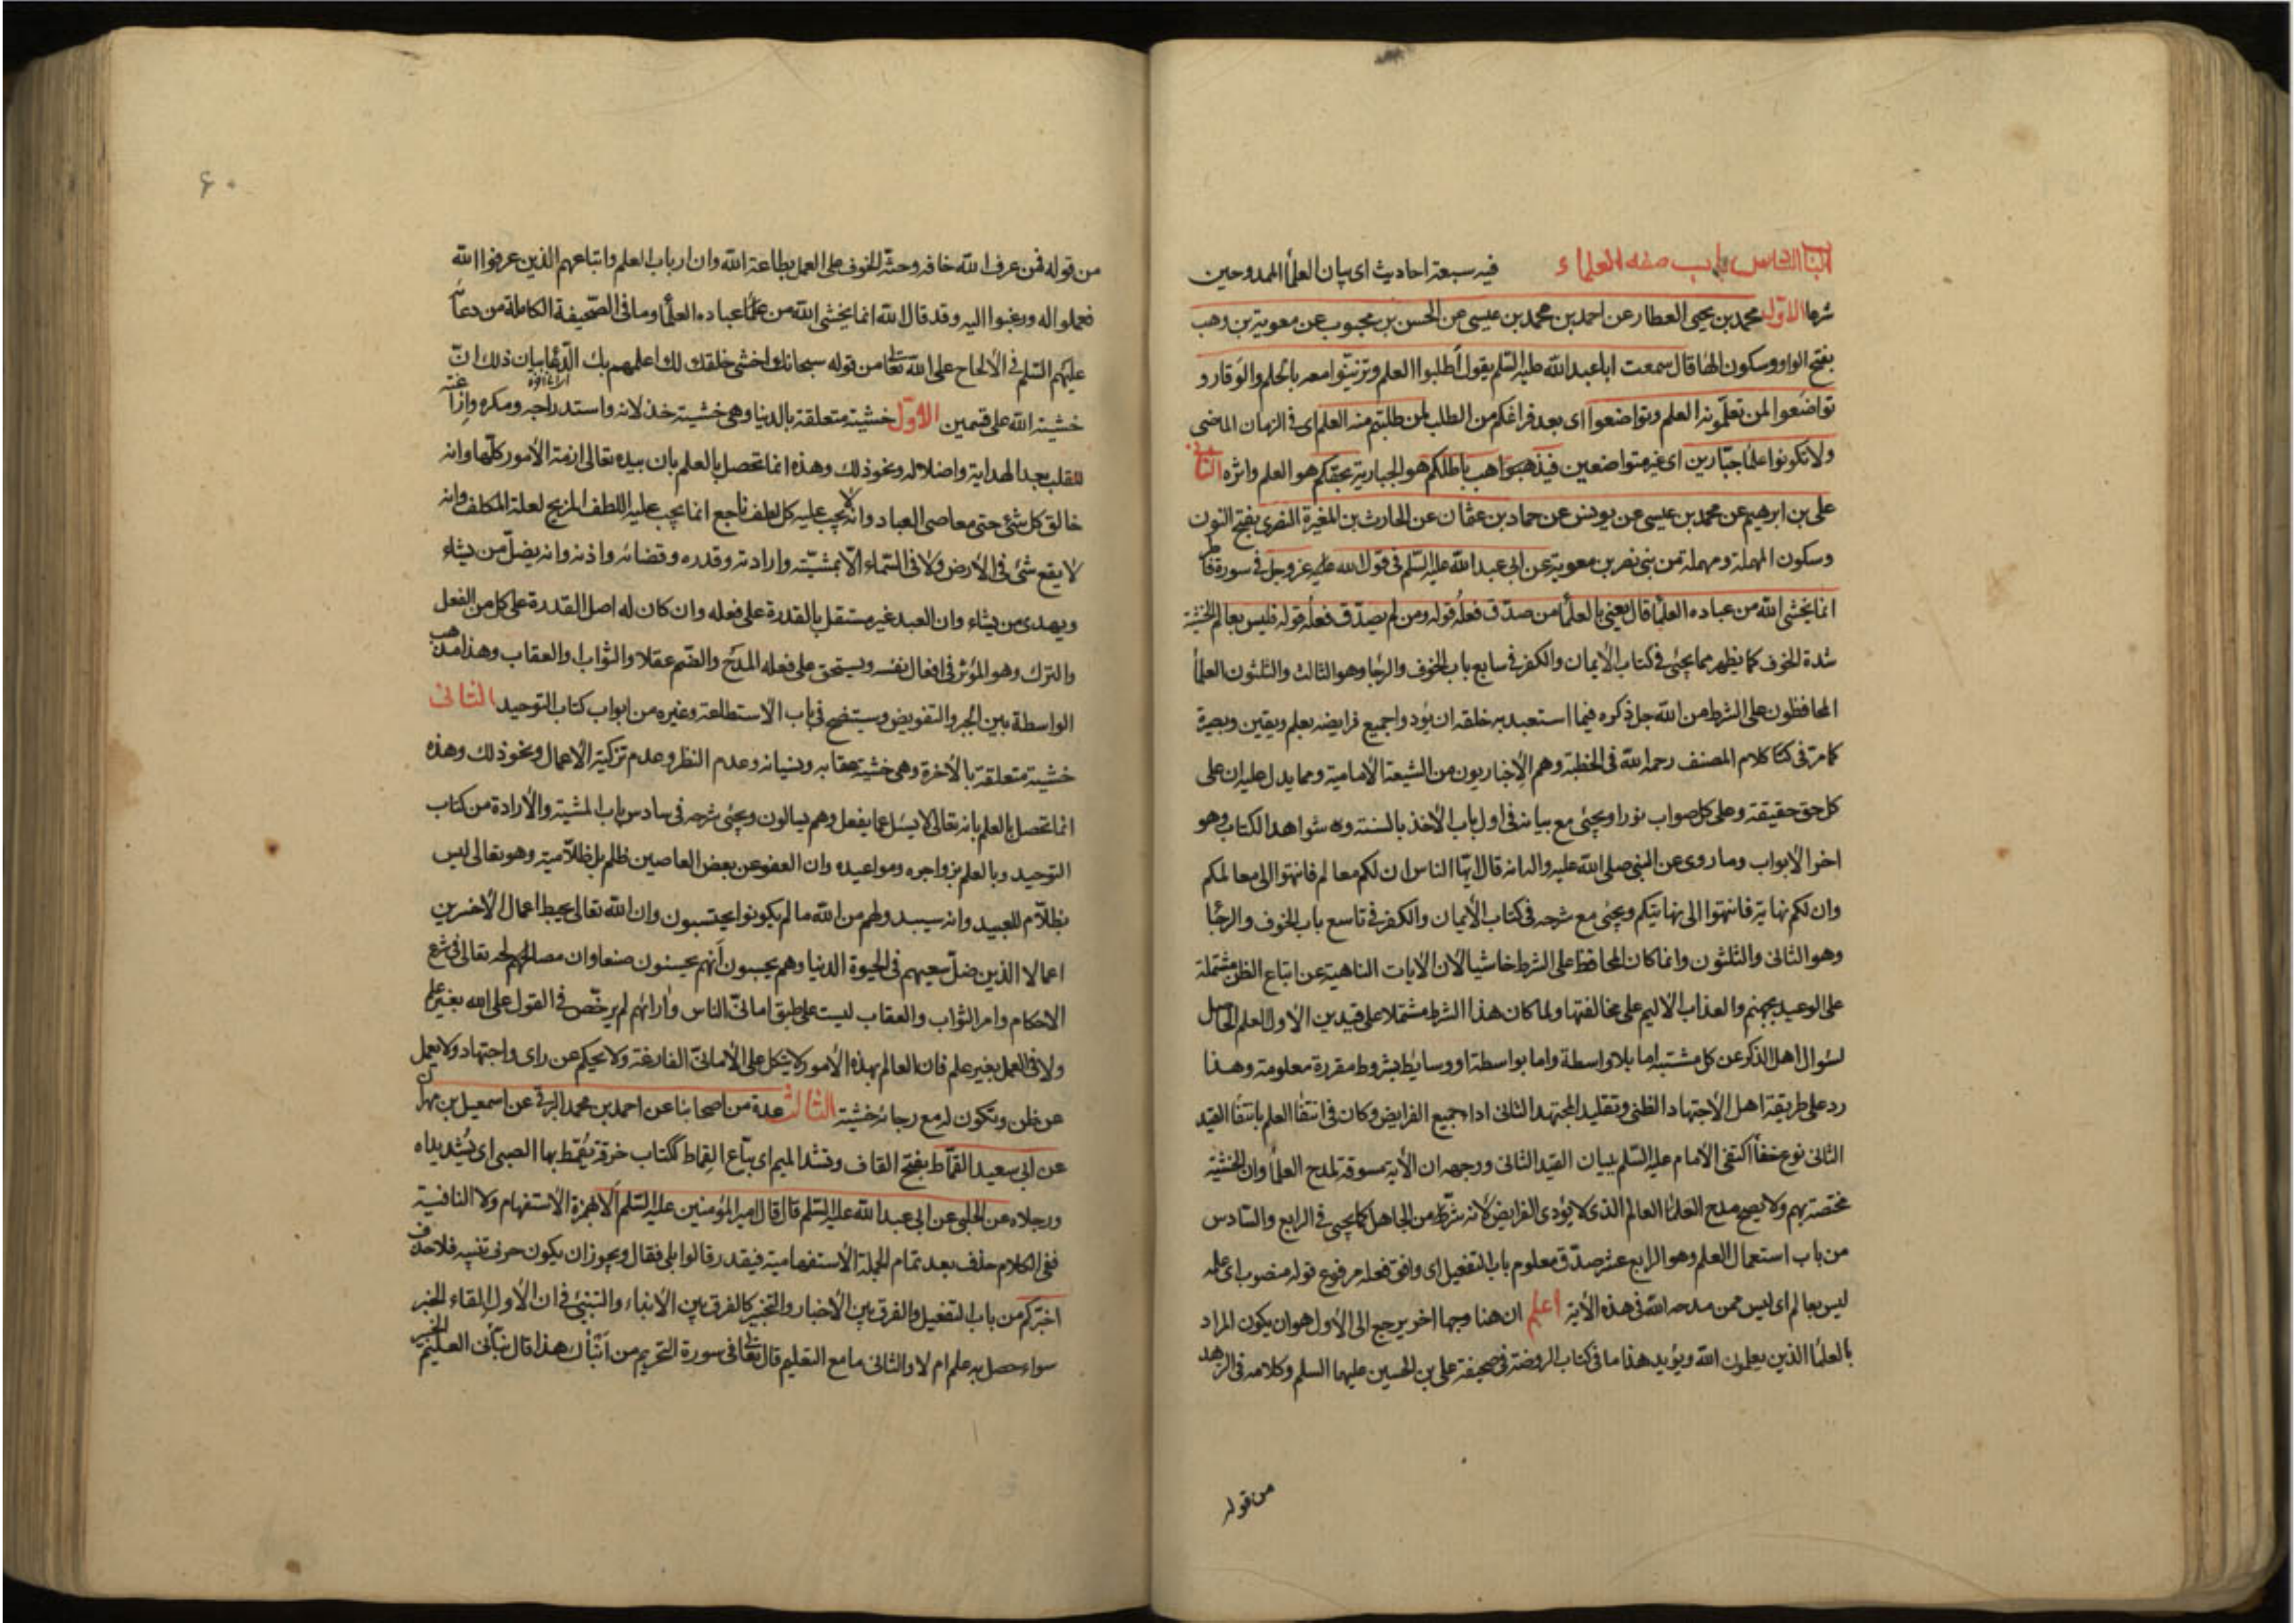 الباب الخامس باب صفة العلماء فيه سبعة احاديث اى بيان العلمأ الممدوحين
شرعا الاول محمد بن يحيى العطار عن احمد بن محمد بن عيسى عن الحسن بن محبوب عن معوية بن وهب
بفتح الواو وسكون الهاء قال سمعت ابا عبد الله عليه السّلم يقول اُطلبوا العلم وتزيّنوا معه بالحلم والوَقار و
تواضَعوا لمن تعلّمونه العلم وتواضعوا اى بعد فراغكم من الطلب لمن طلبتم منه العلم اى فى الزمان الماضى
ولا تكونوا علماء جبّارين اى غير متواضعين فيذهب باطلكم هو الجبارية بحقكم هو العلم واثره الثانى
على بن ابرهيم عن محمد بن عيسى عن يونس عن حماد بن عثمان عن الحارث بن المغيرة النصرى بفتح النون
وسكون المهملة ومهملة من بنى نصر بن معوية عن ابى عبد الله عليه السّلم فى قول الله عز وجل فى سورة فاطر
انما يخشى الله من عباده العلمٰا قال يعنى بالعلمٰا من صدّق فعلُه قولَه ومن لم يصدّق فعلُه قولَه فليس بعالم الخشية
شدة الخوف كما يظهر مما يجئ فى كتاب الايمان والكفر فى سابع باب الخوف والرجٰا وهو الثالث والثلثون العلمٰأ
المحافظون على الشرط من الله جل ذكره فيما استعبد به خلقه ان يؤدوا جميع فرايضه بعلم ويقين وبصيرة
كما مرّ فى كلام المصنف رحمه الله فى الخطبة وهم الاخباريون من الشيعة الامامية ومما يدل عليه ان على
كل حق حقيقة وعلى كل صواب نورا ويجئ مع بيانه فى اول باب الاخذ بالسنة وشواهد الكتاب وهو
اخر الابواب وما روى عن النبى صلى الله عليه واله انه قال ايّها الناس ان لكم معالم فانتهوا الى معالمكم
وان لكم نهاية فانتهوا الى نهايتكم ويجئ مع شرحه فى كتاب الايمان والكفر فى تاسع باب الخوف والرجٰا
وهو الثانى والثلثون وانما كان المحافظ على الشرط خاشيا لان الايات الناهية عن اتباع الظن مشتملة
على الوعيد بجهنم والعذاب الاليم على مخالفتها ولما كان هذا الشرط مشتملا على قيدين الاول العلم الحاصل
لسؤال اهل الذكر عن كل مشتبه اما بلا واسطة واما بواسطة او وسايط بشروط مقررة معلومة وهذا
رد على طريقة اهل الاجتهاد الظنى وتقليد المجتهد الثانى اداء جميع الفرايض وكان فى انتفٰا العلم بانتفٰا القيد
الثانى نوع خفٰأ اكتفى الامام عليه السّلم ببيان القيد الثانى ووجهه ان الاية مسوقة لمدح العلمٰا وان الخشية
مختصة بهم ولا يصح مدح العلمٰا العالم الذى لا يؤدى الفرايض لانه شر من الجاهل كما يجئ فى الرابع والسّادس
من باب استعمال العلم وهو الرابع عشر صدّق معلوم باب التفعيل اى وافق فعله مرفوع قوله منصوب اى علمه
ليس بعالم اى ليس ممن مدحه الله فى هذه الاية اعلم ان هنا وجها اخر يرجع الى الاول هو ان يكون المراد
بالعلمٰا الذين يعلمون الله ويؤيد هذا ما فى كتاب الروضة فى صحيفة على بن الحسين عليهما السلم وكلامه فى الزهد
من قوله
٦٠
من قوله فمن عرف الله خافه وحثّه الخوف على العمل بطاعة الله وان ارباب العلم واتباعهم الذين عرفوا الله
فعملوا له ورغبوا اليه وقد قال الله انما يخشى الله من عباده العلمٰا وما فى الصّحيفة الكاملة من دعائه
عليهم السّلم فى الالحاح على الله تعٰا من قوله سبحانك اخشى خلقك لك اعلمهم بك بيان ذلك انّ
خشية الله على قسمين الاوّل خشية متعلقة بالدنيا وهى خشية خذلانه واستدراجه ومكره وازاغته
للقلب بعد الهداية واضلاله ونحو ذلك وهذه انما تحصل بالعلم بان بيده تعالى ازمة الامور كلّها وانه
خالق كل شئ حتى معاصى العباد وانّه لا يجب عليه كل لطف ناجع انما يجب عليه اللطف المزيح لعلة المكلف وانه
لا يقع شئ فى الارض ولا فى السّماء الّا بمشيّته وارادته وقدره وقضائه واذنه وانه يضلّ من يشاء
ويهدى من يشاء وان العبد غير مستقل بالقدرة على فعله وان كان له اصل القدرة على كل من الفعل
والترك وهو المؤثر فى افعال نفسه ويستحق على فعله المدح والذم عقلا والثواب والعقاب وهذا مذهب
الواسطة بين الجبر والتفويض وسيتضح فى باب الاستطاعة وغيره من ابواب كتاب التوحيد الثانى
خشية متعلقة بالاخرة وهى خشية عقابه ونسيانه وعدم النظر وعدم تزكية الاعمال ونحو ذلك وهذه
انما تحصل بالعلم بانه تعالى لا يسئل عما يفعل وهم يسالون ويجئ شرحه فى سادس باب المشية والارادة من كتاب
التوحيد وبالعلم بزواجره ومواعيده وان العفو عن بعض العاصين ظلم بل ظلّامية وهو تعالى ليس
بظلّام للعبيد وانه سيبدو لهم من الله ما لم يكونوا يحتسبون وان الله تعالى يحبط اعمال الاخسرين
اعمالا الذين ضلّ سعيهم فى الحيوة الدنيا وهم يحسبون انّهم يحسنون صنعا وان مصالحه تعالى فى شرع
الاحكام وامر الثواب والعقاب ليست على طبق امانىّ الناس واٰرائهم لم يرخّص فى القول على الله بغير علم
ولا فى العمل بغير علم فان العالم بهذه الامور لا يتكل على الامانىّ الفارغة ولا يحكم عن راى واجتهاد ولا يعمل
عن ظن وتكون له مع رجائه خشية الثالث عدة من اصحابنا عن احمد بن محمد البرقى عن اسمعيل بن مهران
عن ابى سعيد القمّاط بفتح القاف وشد الميم اى بيّاع القِماط ككتاب خرقة يقمّط بها الصبى اى يُشد يداه
ورجلاه عن الحلبى عن ابى عبد الله عليه السّلم قال قال امير المؤمنين عليه السّلم اَلا الهمزة للاستفهام ولا النافية
ففى الكلام حذف بعد تمام الجملة الاستفهامية فيقدر قالوا بلى فقال ويجوز ان يكون حرف تنبيه فلا حذف
اخبّركم من باب التفعيل والفرق بين الاخبار والتخبير كالفرق بين الانباء والتنبئ فى ان الاول القاء الخبر
سواء حصل به علم ام لا والثانى ما مع التعليم قال تعٰا فى سورة التحريم من انبأك هذا قال نبّأنى العليم الخبير